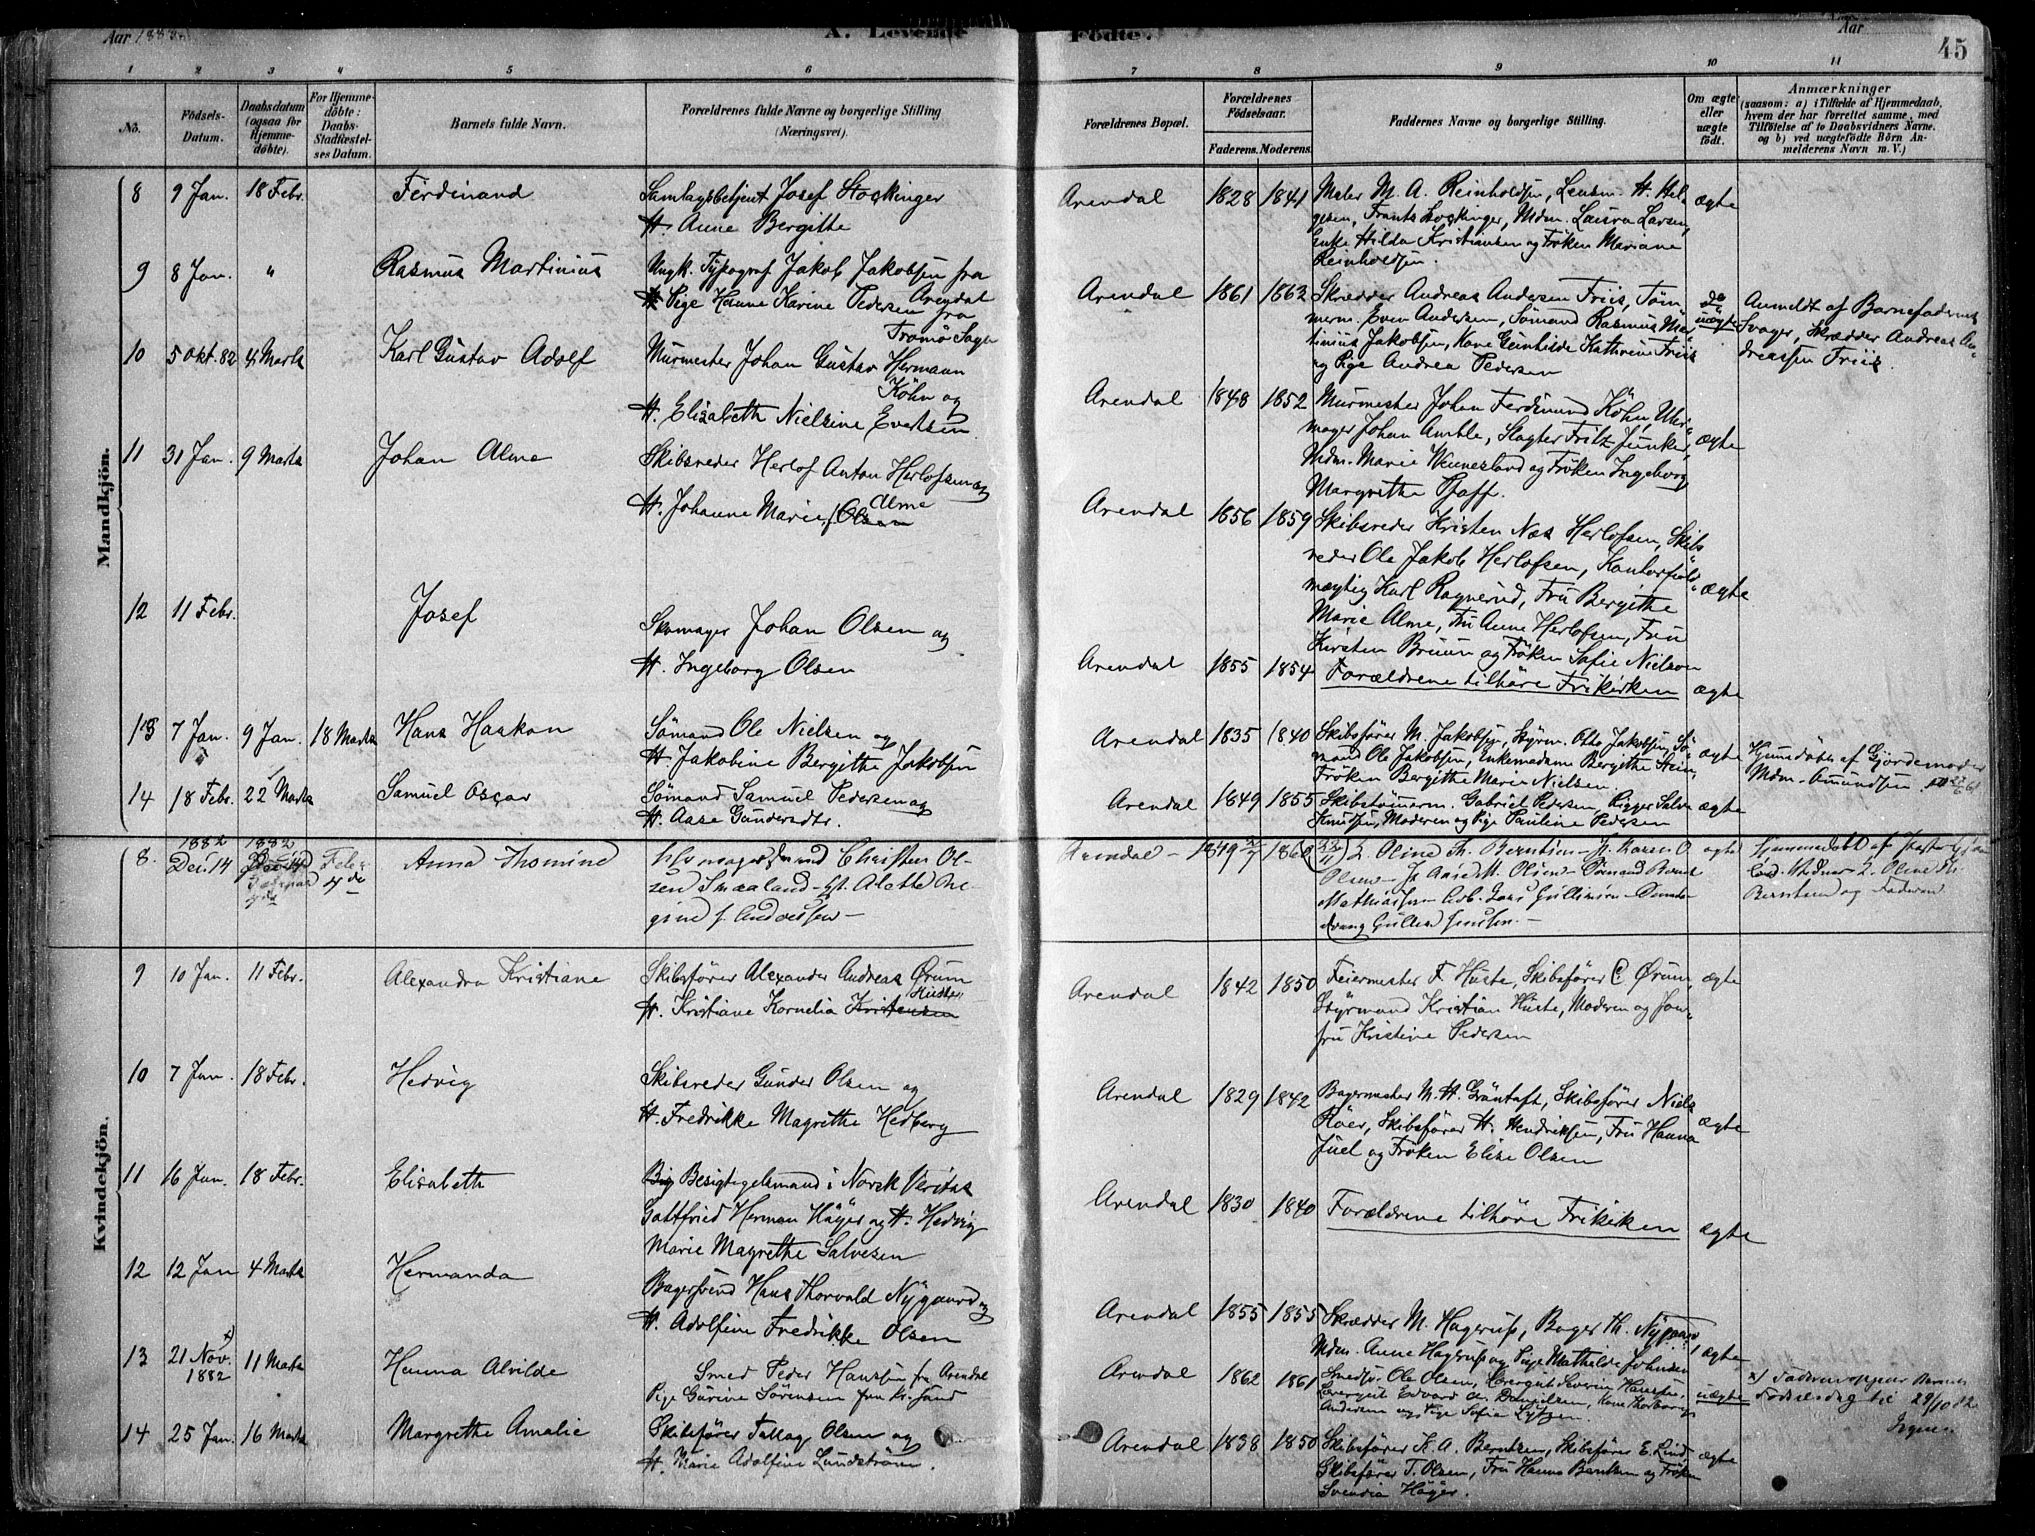 Aar 1883.
A. Levende Födte.
Aar
45
1 2 3 4 5 6 7 8 9 10 11
No.
Födsels-
Datum.
Daabsdatum
(ogsaa for
Hjemme-
döbte).
For Hjemme-
döbte:
Daabs-
Stadfæstel-
ses Datum.
Barnets fulde Navn.
Forældrenes fulde Navne og borgerlige Stilling
(Næringsvei).
Forældrenes Bopæl.
Forældrenes
Födselsaar.
Faderens. Moderens.
Faddernes Navne og borgerlige Stilling.
Om ægte
eller
uægte
födt.
Anmærkninger
(saasom: a) i Tilfælde af Hjemmedaab,
hvem der har forrettet samme, med
Tilföielse af to Daabsvidners Navne.
og b) ved uægtefödte Börn An-
melderens Navn m. V.)
Mandkjön.
8 9 Jan. 18 Febr. Ferdinand
Samlagsbetjent Josef Stockinger
H. Anne Bergithe
Arendal 1828 1841
Maler M. A. Reinholdsen, Lensm. H. Hel-
gesen, Frants Stockinger, Mdm. Laura Larsen,
Enke Hilda Kristiansen og Fröken Mariane
Reinholdsen.
ægte
9 8 Jan. " Rasmus Martinius
Ungk. Typograf Jakob Jakobsen fra
Arendal
Pige Hanne Karine Pedersen fra
Tromö Sogn
Arendal 1861 1863
Skrædder Andreas Andersen Friis, Töm
merm. Even Andersen, Sömand Rasmus Mar-
tinius Jakobsen, Kone Gunhilde Kathrine Friis
og Pige Andrea Pedersen
uægte
Anmeldt af Barnefaderens
Svager, Skrædder Andreas An-
dreassen Friis.
10 5 Okt. 82 4 Marts Karl Gustav Adolf
Murmester Johan Gustav Hermann
Köhn og
H. Elisabeth Nielsine Evertsen
Arendal 1848 1852
Murmester Johan Ferdinand Köhn, Uhr-
mager Johan Amble, Slagter Fritz Junker,
Mdm. Marie Wennesland og Fröken Ingeborg
Margrethe Pfaff.
ægte
11 31 Jan. 9 Marts Johan Alme
Skibsreder Herlof Anton Herlofsen og
H. Johanne Marie f. Olsen Alme
Arendal 1856 1859
Skibsreder Kristen Næs Herlofsen, Skibs
reder Ole Jakob Herlofsen, Kontorfuld-
mægtig Karl Ragnerud, Fru Bergithe
Marie Alme, Fru Anne Herlofsen, Fru
Kirsten Bruun og Fröken Sofie Nielsen
ægte
12 11 Febr. Josef
Skomager Johan Olsen og
H. Ingeborg Olsen
Arendal 1855 1854
Forældrene tilhöre Frikirken
ægte
13 7 Jan. 9 Jan. 18 Marts Hans Haakon
Sömand Ole Nielsen og
H. Jakobine Bergithe Jakobsen
Arendal 1835 1840
Skibsförer M. Jakobsen, Styrm. Otto Jakobsen, Sö-
mand Ole Jakobsen, Enkemadame Bergithe Heim,
Fröken Bergithe Marie Nielsen.
ægte
Hjemdöbt af Gjordemoder
Mdm. Amundsen
14 18 Febr. 22 Marts Samuel Oscar
Sömand Samuel Pedersen og
H. Aase Gundersdtr.
Arendal 1849 1855
Skibstömerm. Gabriel Pedersen, Rigger Salve
Knudsen, Moderen og Pige Pauline Pedersen
ægte
8. 1882 Dec. 14 1882
Anna Thomine
Christen Ol-
sen Smaaland - H. Alette Re-
gine f. Andersen -
Arendal - 1849 1860
L. Oline Th. Berntsen - H. Karen O
Olsen - J. Aase M. Olsen - Sömand Bernt
Mathiassen -
ægte
Hjemmedöbt af
L. Oline Th.
Berntsen og Faderen
Kvindekjön.
9 10 Jan. 11 Febr. Alexandra Kristiane
Skibsförer Alexander Andreas Örum
Huste
H. Kristiane Kornelia Kristensen
Arendal 1842 1850
Feiermester F. Huste, Skibsförer C. Örum,
Styrmand Kristian Huste, Moderen og Jom-
fru Kristine Pedersen
ægte
10 7 Jan. 18 Febr. Hedvig
Skibsreder Gunder Olsen og
H. Fredrikke Magrethe Hedberg
Arendal 1829 1842
Bagermester M. H. Gröntoft, Skibsförer Niels
Röer, Skibsförer H. Hendriksen, Fru Hanna
Juel og Fröken Elise Olsen
ægte
11 16 Jan. 18 Febr. Elisabeth
Besigtigelsmand i Norsk Veritas
Gottfried Herman Häger og H. Hedvig
Marie Magrethe Salvesen
Arendal 1830 1840
Forældrene tilhöre Frikirken
ægte
12 12 Jan 4 Marts Hermanda
Bagersvend Hans Thorvald Nygaard og
H. Adolfine Fredrikke Olsen
Arendal 1855 1855
Skrædder M. Hagerup, Bager Th. Nygaard,
Mdm. Anne Hagerup og Pige Mathilde Johnsen
ægte
13 21 Nov. x) 1882 11 Marts Hanna Alvilde
Smed Peder Hansen fra Arendal
Pige Gurine Sörensen fra Kr.sand
Arendal 1862 1861
Smedsv. Ole Olsen, Lærergut Severin Hansen,
Lærergut Edvard A. Danielsen, Kone Thorborg
Andersen og Pige Sofie Lytzen.
uægte
x) Faderen opgiver Barnets
Födselsdag til 29/10 82
14 25 Jan. 16 Marts Margrethe Amalie
Skibsförer Tallag Olsen og
H. Marie Adolfine Lundström.
Arendal 1838 1850
Skibsförer K. A. Berntsen, Skibsförer E. Lind
Skibsförer T. Olsen, Fru Hanna Berntsen og Fröken
Svendia Häger.
ægte